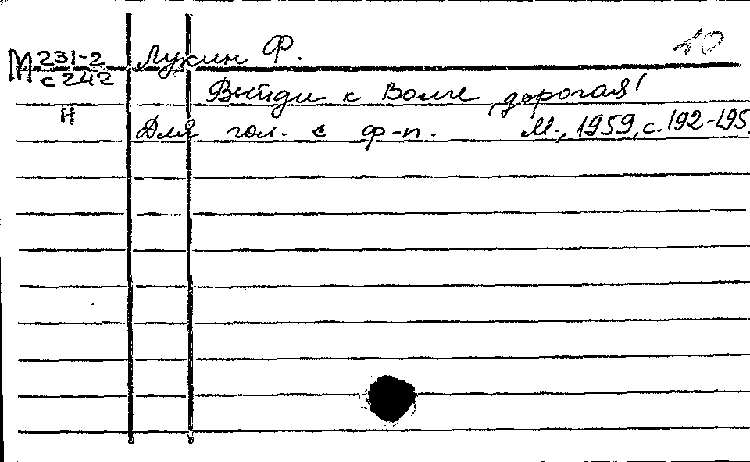 М 231-2 Лукин Ф. 10
с 242
Выйди к Волге, дорогая!
Н
Для гол. с ф-п. М., 1959, с. 192-195.